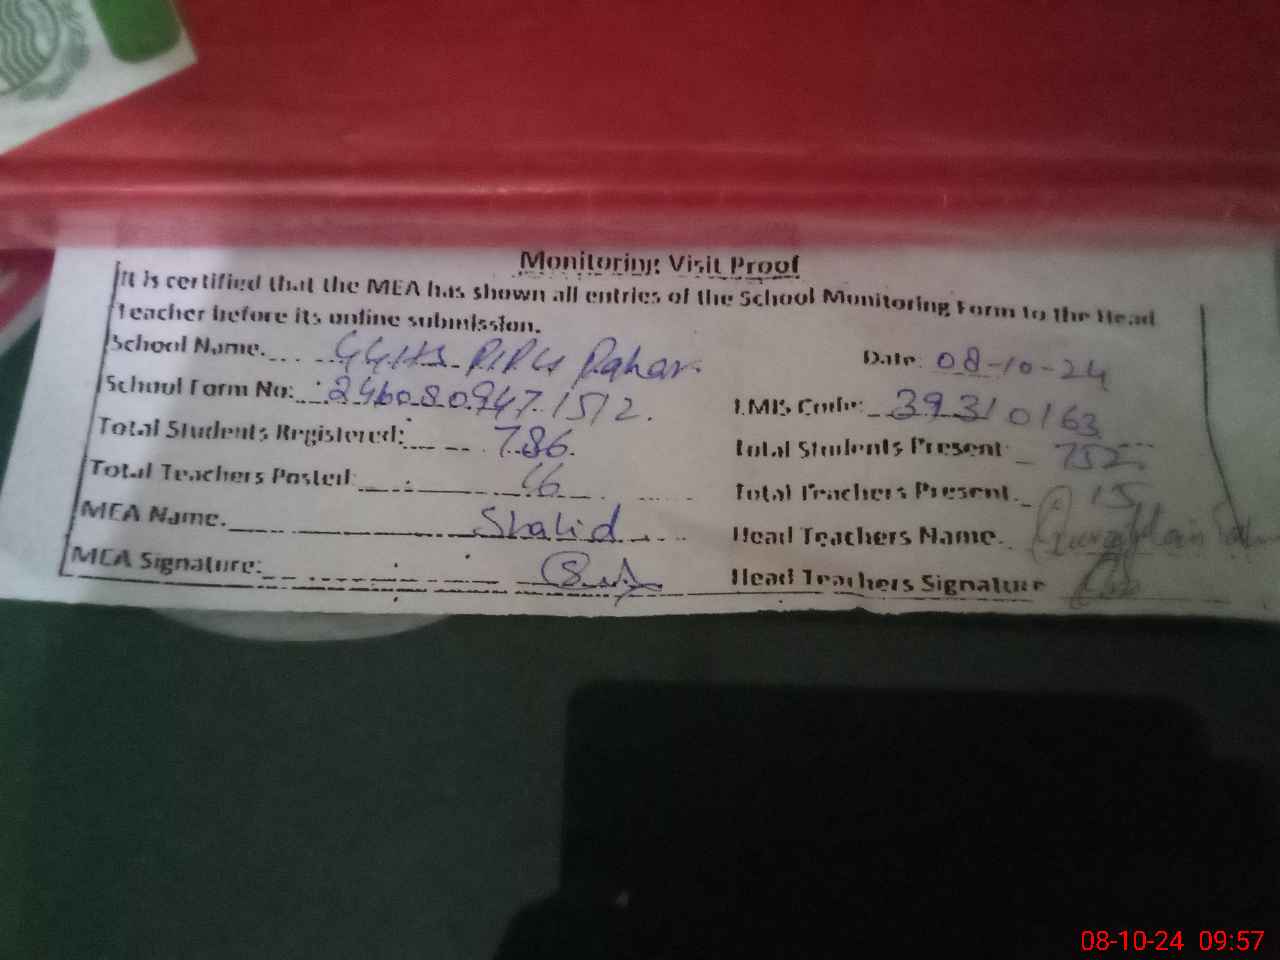 Monitoring Visit Proof
It is certified that the MEA has shown all entries of the School Monitoring Form to the Head
Teacher before its online submission.
School Name. Pahar. Date: 08-10-24
School Form No: 2460809471512. EMIS Code: 39310163
Total Students Registered: 786. Total Students Present: 752
Total Teachers Posted: 16 Total Teachers Present. 15
MEA Name. Shahid Head Teachers Name.
MEA Signature: Head Teachers Signature
08-10-24 09:57